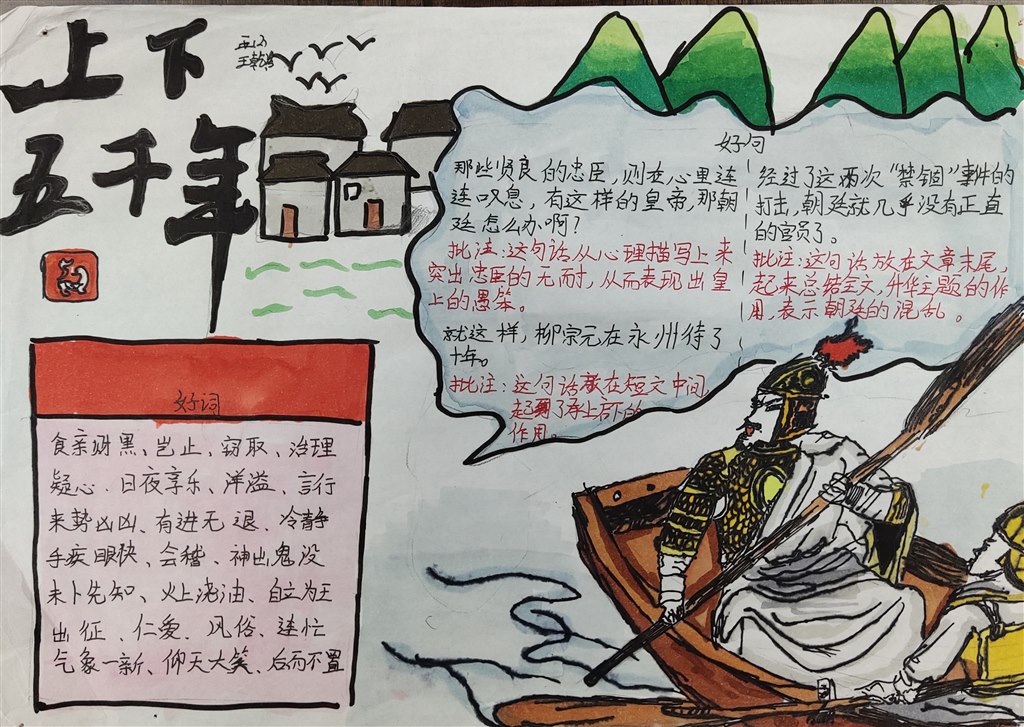 上下
五千年
好词
食亲财黑、岂止、窃取、治理
疑心、日夜享乐、洋溢、言行
来势凶凶、有进无退、冷静
手疾眼快、会稽、神出鬼没
未卜先知、火上浇油、自立为王
出征、仁爱、风俗、连忙
气象一新、仰天大笑、后而不置
好句
那些贤良的忠臣，则在心里连
连叹息，有这样的皇帝，那朝
廷怎么办啊？
批注：这句话从心理描写上来
突出忠臣的无耐，从而表现出皇
上的愚笨。
就这样，柳宗元在永州待了
十年。
批注：这句话放在短文中间
起到了承上启下的
作用。
经过了这两次“禁锢”事件的
打击，朝廷就几乎没有正直
的官员了。
批注：这句话放在文章末尾，
起来总结全文，升华主题的作
用，表示朝廷的混乱。